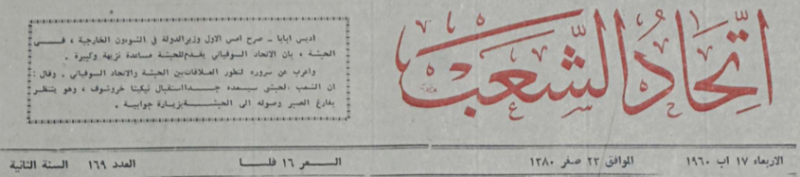 اتحاد الشعب
اديس ابابا ـ صرح امس الاول وزير الدولة في الشؤون الخارجية ، فــي
الحبشة ، بان الاتحاد السوفياتي يقدم للحبشة مساعدة نزيهة وكبيرة .
واعرب عن سروره لتطور العلاقات بين الحبشة والاتحاد السوفياتي . وقال :
ان الشعب الحبشي سيسعده جــدا استقبال نيكيتا خروتشوف ، وهو ينتظر
بفارغ الصبر وصوله الى الحبشــة بزيــارة جوابية .
الاربعاء ١٧ اب ١٩٦٠ الموافق ٢٣ صفر ١٣٨٠ الســعر ١٦ فلســا العدد ١٦٩ السنة الثانية